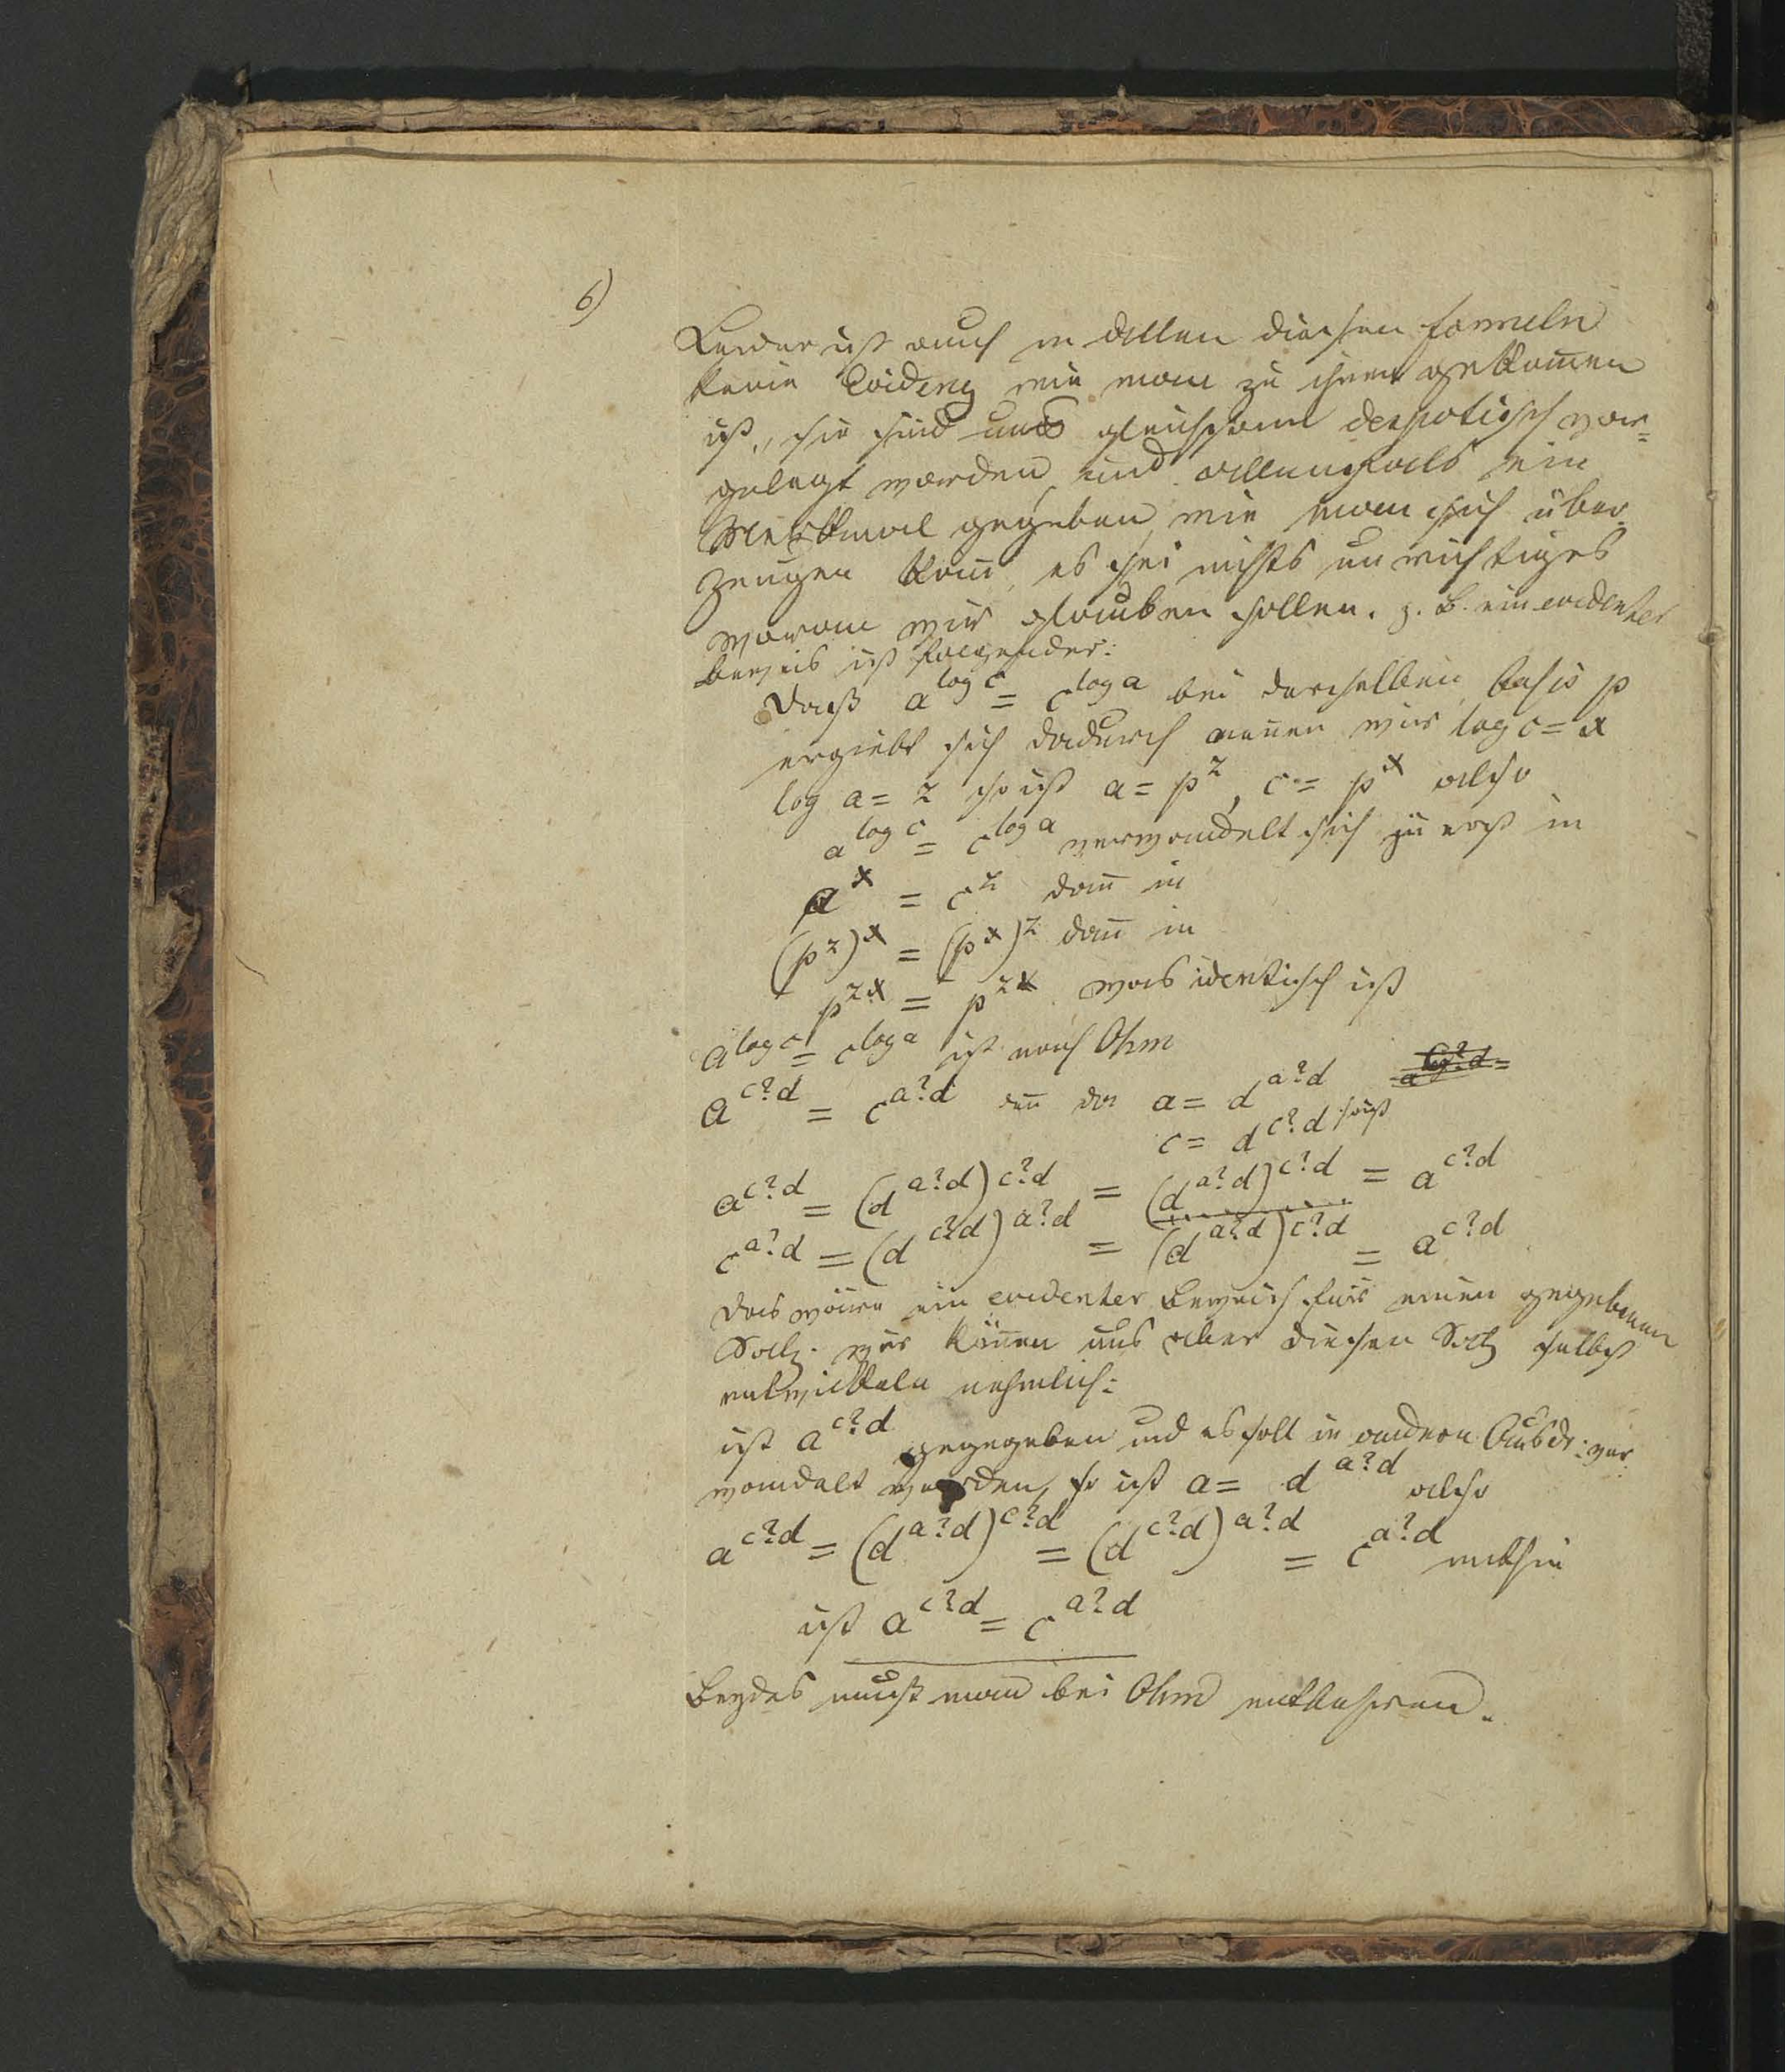 6)
Leider ist auch in allen diesen formeln
keine Evidenz wie man zu ihnen gekom̄en
ist, sie sind uns gleichsam despotisch vor=
gelegt worden und allenfals ein
Merkmal gegeben, wie man sich über
zeugen kan̄, es sei nichts unrichtiges
woran wir glauben sollen. z. B. ein evidenter
beweis ist folgender:
Daß a^{log c} = c^{log a} bei derselben basis p
ergiebt sich dadurch nen̄en wir log c = x
log a = z so ist a = p^z, c = p^x also
a^{log c} = c^{log a} verwandelt sich zu erst in
a^x = c^z dan̄ in
(p^z)^x = (p^x)^z dan̄ in
p^{zx} = p^{zx} was identisch ist
a^{log c} = c^{log a} ist nach Ohm
a^{c?d} = c^{a?d} den̄ da a = d^{a?d}
c = d^{c?d} so ist
a^{c?d} = (d^{a?d})^{c?d} = (d^{a?d})^{c?d} = a^{c?d}
c^{a?d} = (d^{c?d})^{a?d} = (d^{a?d})^{c?d} = a^{c?d}
das wäre ein evidenter Beweis für einen gegebenen
Satz. wir kön̄en uns aber diesen Satz selbst
entwikkeln nehmlich:
ist a^{c?d} gegegeben und es soll in andern Ausdr: ver
wandelt werden, so ist a = d^{a?d} also
a^{c?d} = (d^{a?d})^{c?d} = (d^{c?d})^{a?d} = c^{a?d} mithin
ist a^{c?d} = c^{a?d}
Beydes muß man bei Ohm entbehren.